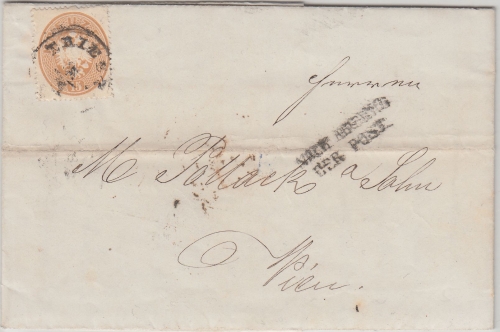 TRIEST
Herren
NACH ABGANG
DER POST.
M. Pollack & Sohn
Wien.